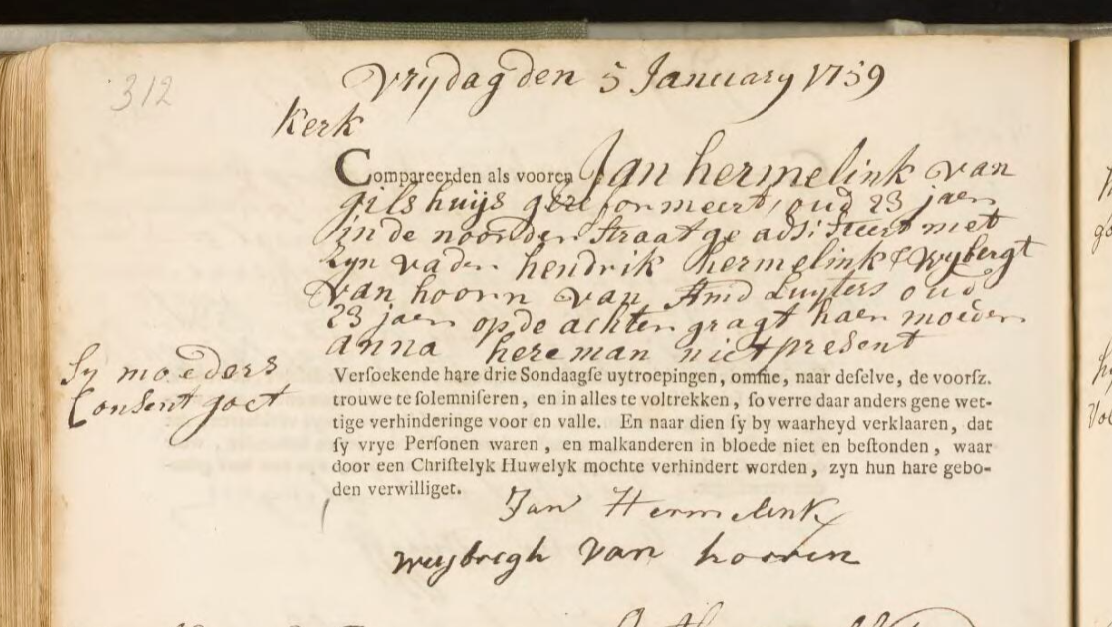 312
Vrydag den 5 January 1759
Kerk
Compareerden als vooren Jan hermelink van
gilshuijs gereformeert, oud 23 jaer
in de noorder Straat ge adsisteert met
Zyn vader hendrik hermelink & Wybergt
van hoorn van Amd Luyters oud
23 jaer op de achter gragt haer moeder
anna hereman niet present
Sy moeders
Consent goet
Versoekende hare drie Sondaagse uytroepingen, omme, naar deselve, de voorsz.
trouwe te solemniseren, en in alles te voltrekken, so verre daar anders gene wet-
tige verhinderinge voor en valle. En naar dien sy by waarheyd verklaaren, dat
sy vrye Personen waren, en malkanderen in bloede niet en bestonden, waar
door een Christelyk Huwelyk mochte verhindert worden, zyn hun hare gebo-
den verwilliget.
Jan Hermelink
weysbregh van horren